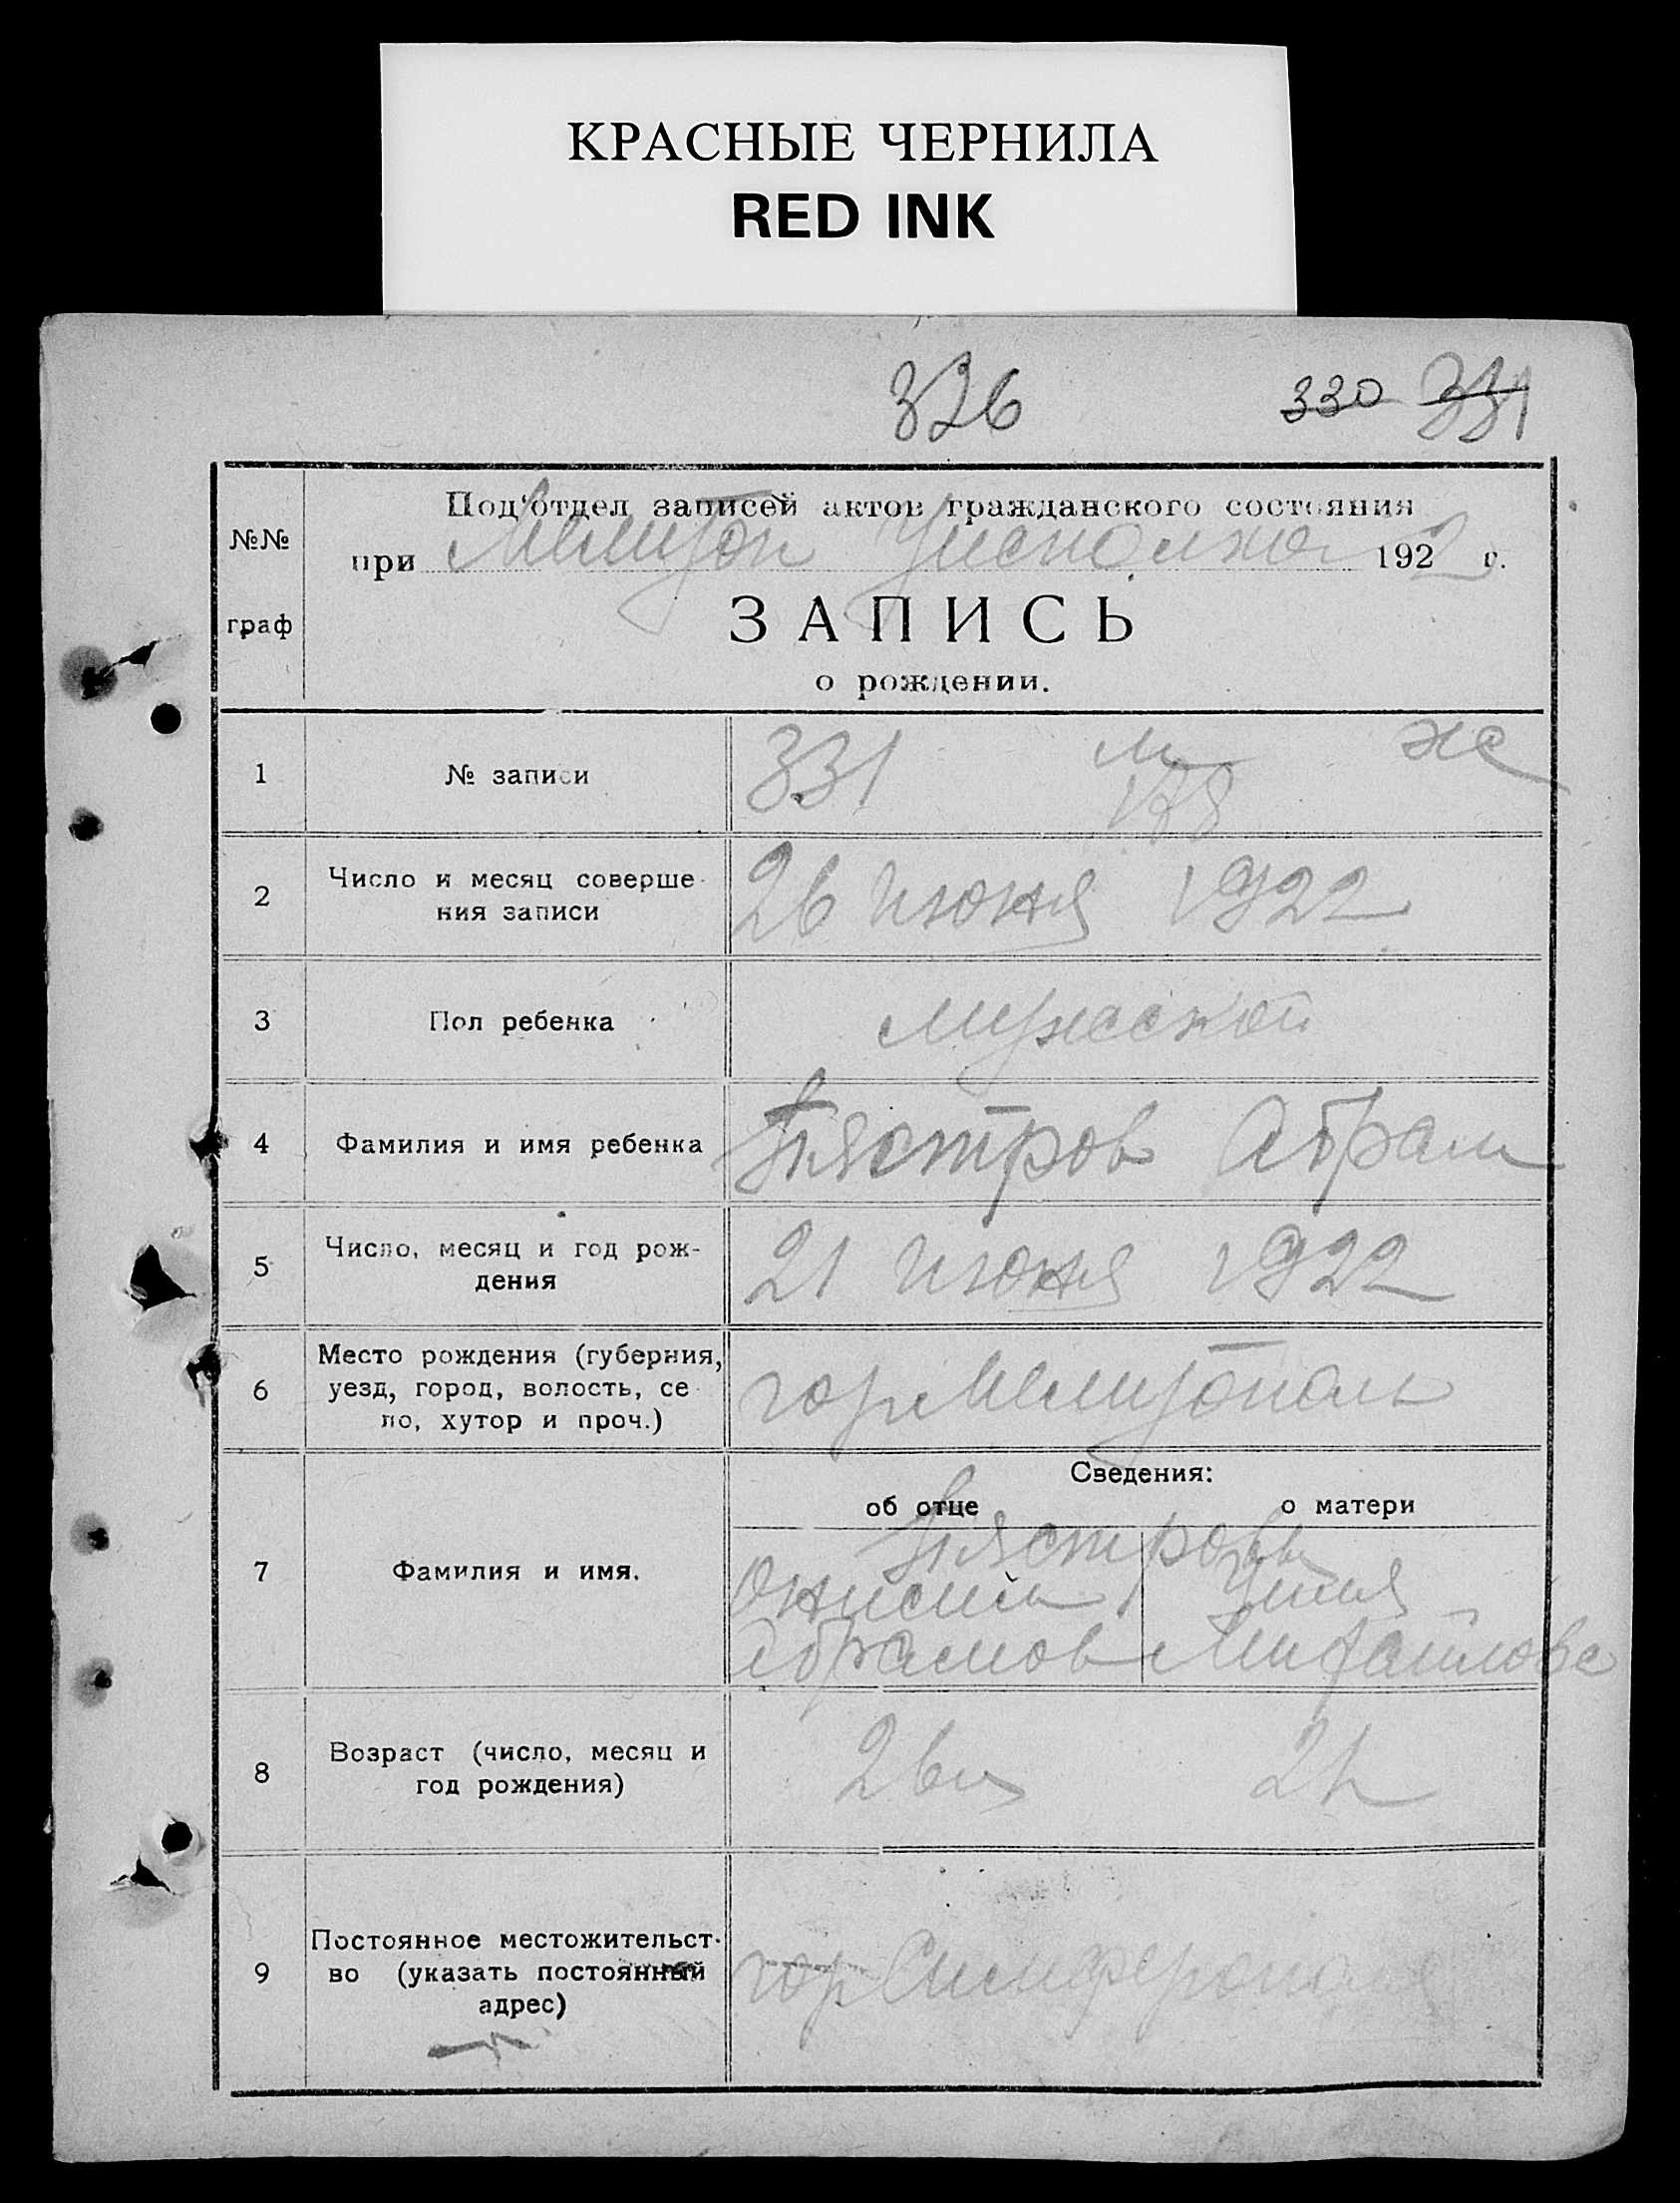 КРАСНЫЕ ЧЕРНИЛА
RED INK
326 330 331
Под'отдел записей актов гражданского состояния
№№
при Мелитоп Уисполкоме 1922 г.
граф
ЗАПИСЬ
о рождении.
1 № записи 331 м 178 ж
2 Число и месяц соверше-
ния записи
26 июня 1922
3 Пол ребенка мужской
4 Фамилия и имя ребенка Абрам
5 Число, месяц и год рож-
дения
21 июня 1922
6 Место рождения (губерния,
уезд, город, волость, се-
ло, хутор и проч.)
гор Мелитополь
Сведения:
об отце о матери
7 Фамилия и имя.
Абрамов
8 Возраст (число, месяц и
год рождения)
26
9 Постоянное местожительст-
во (указать постоянный
адрес)
гор Симферополь